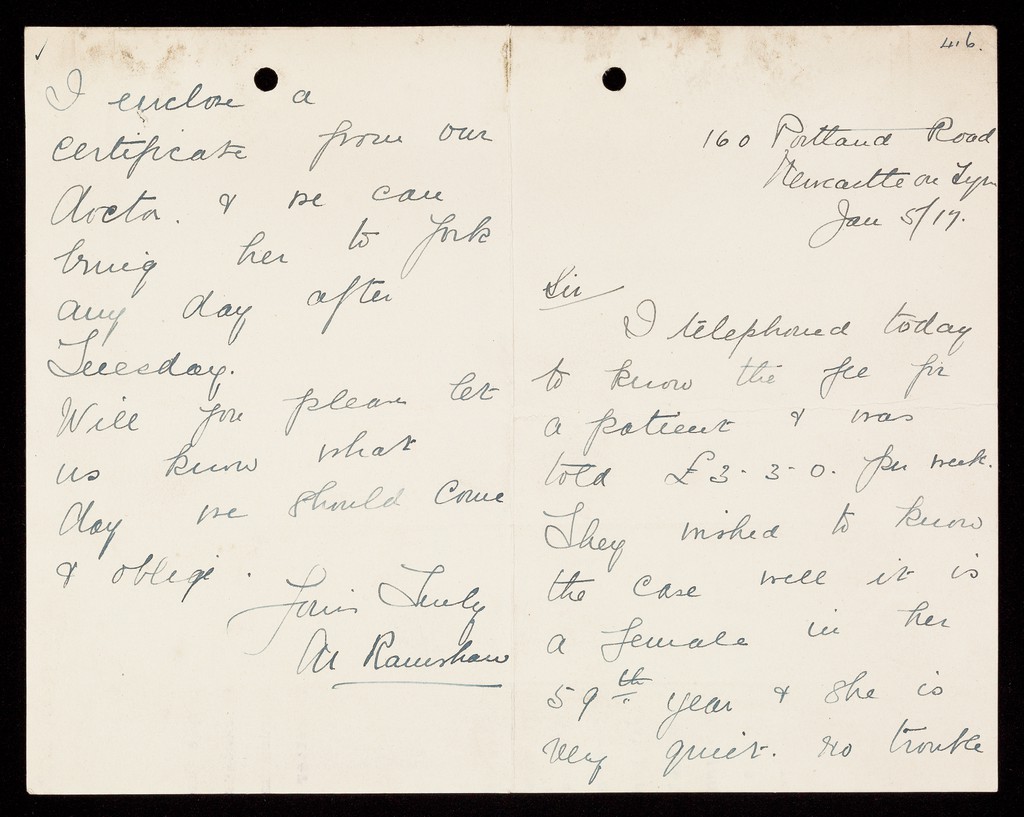 416.
160 Portland Road
Newcastle on Tyne
Jan 5/17.
Sir
I telephoned today
to know the fee for
a patient & was
told £3-3-0. per week.
They wished to know
the case well it is
a female in her
59th year & she is
very quiet. no trouble
I enclose a
certificate from our
doctor. & we can
bring her to York
any day after
Tuesday.
Will you please let
us know what
day we should come
& oblige.
Yours Truly
M Ramshaw